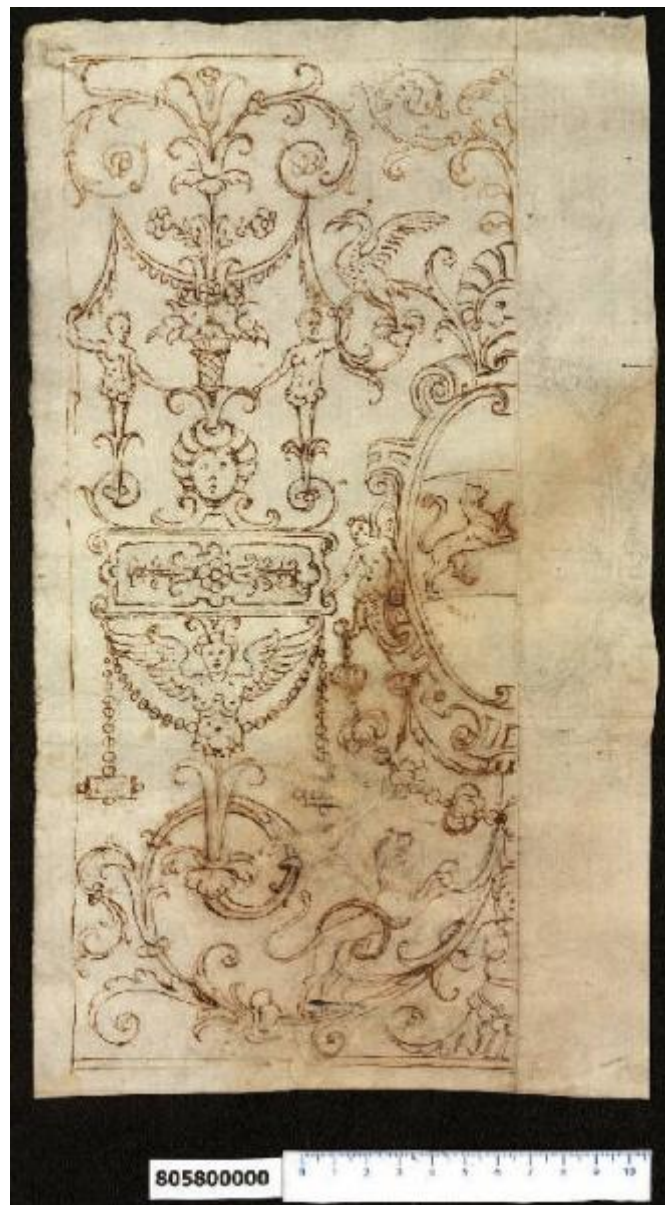 805800000
0 1 2 3 4 5 6 7 8 9 10